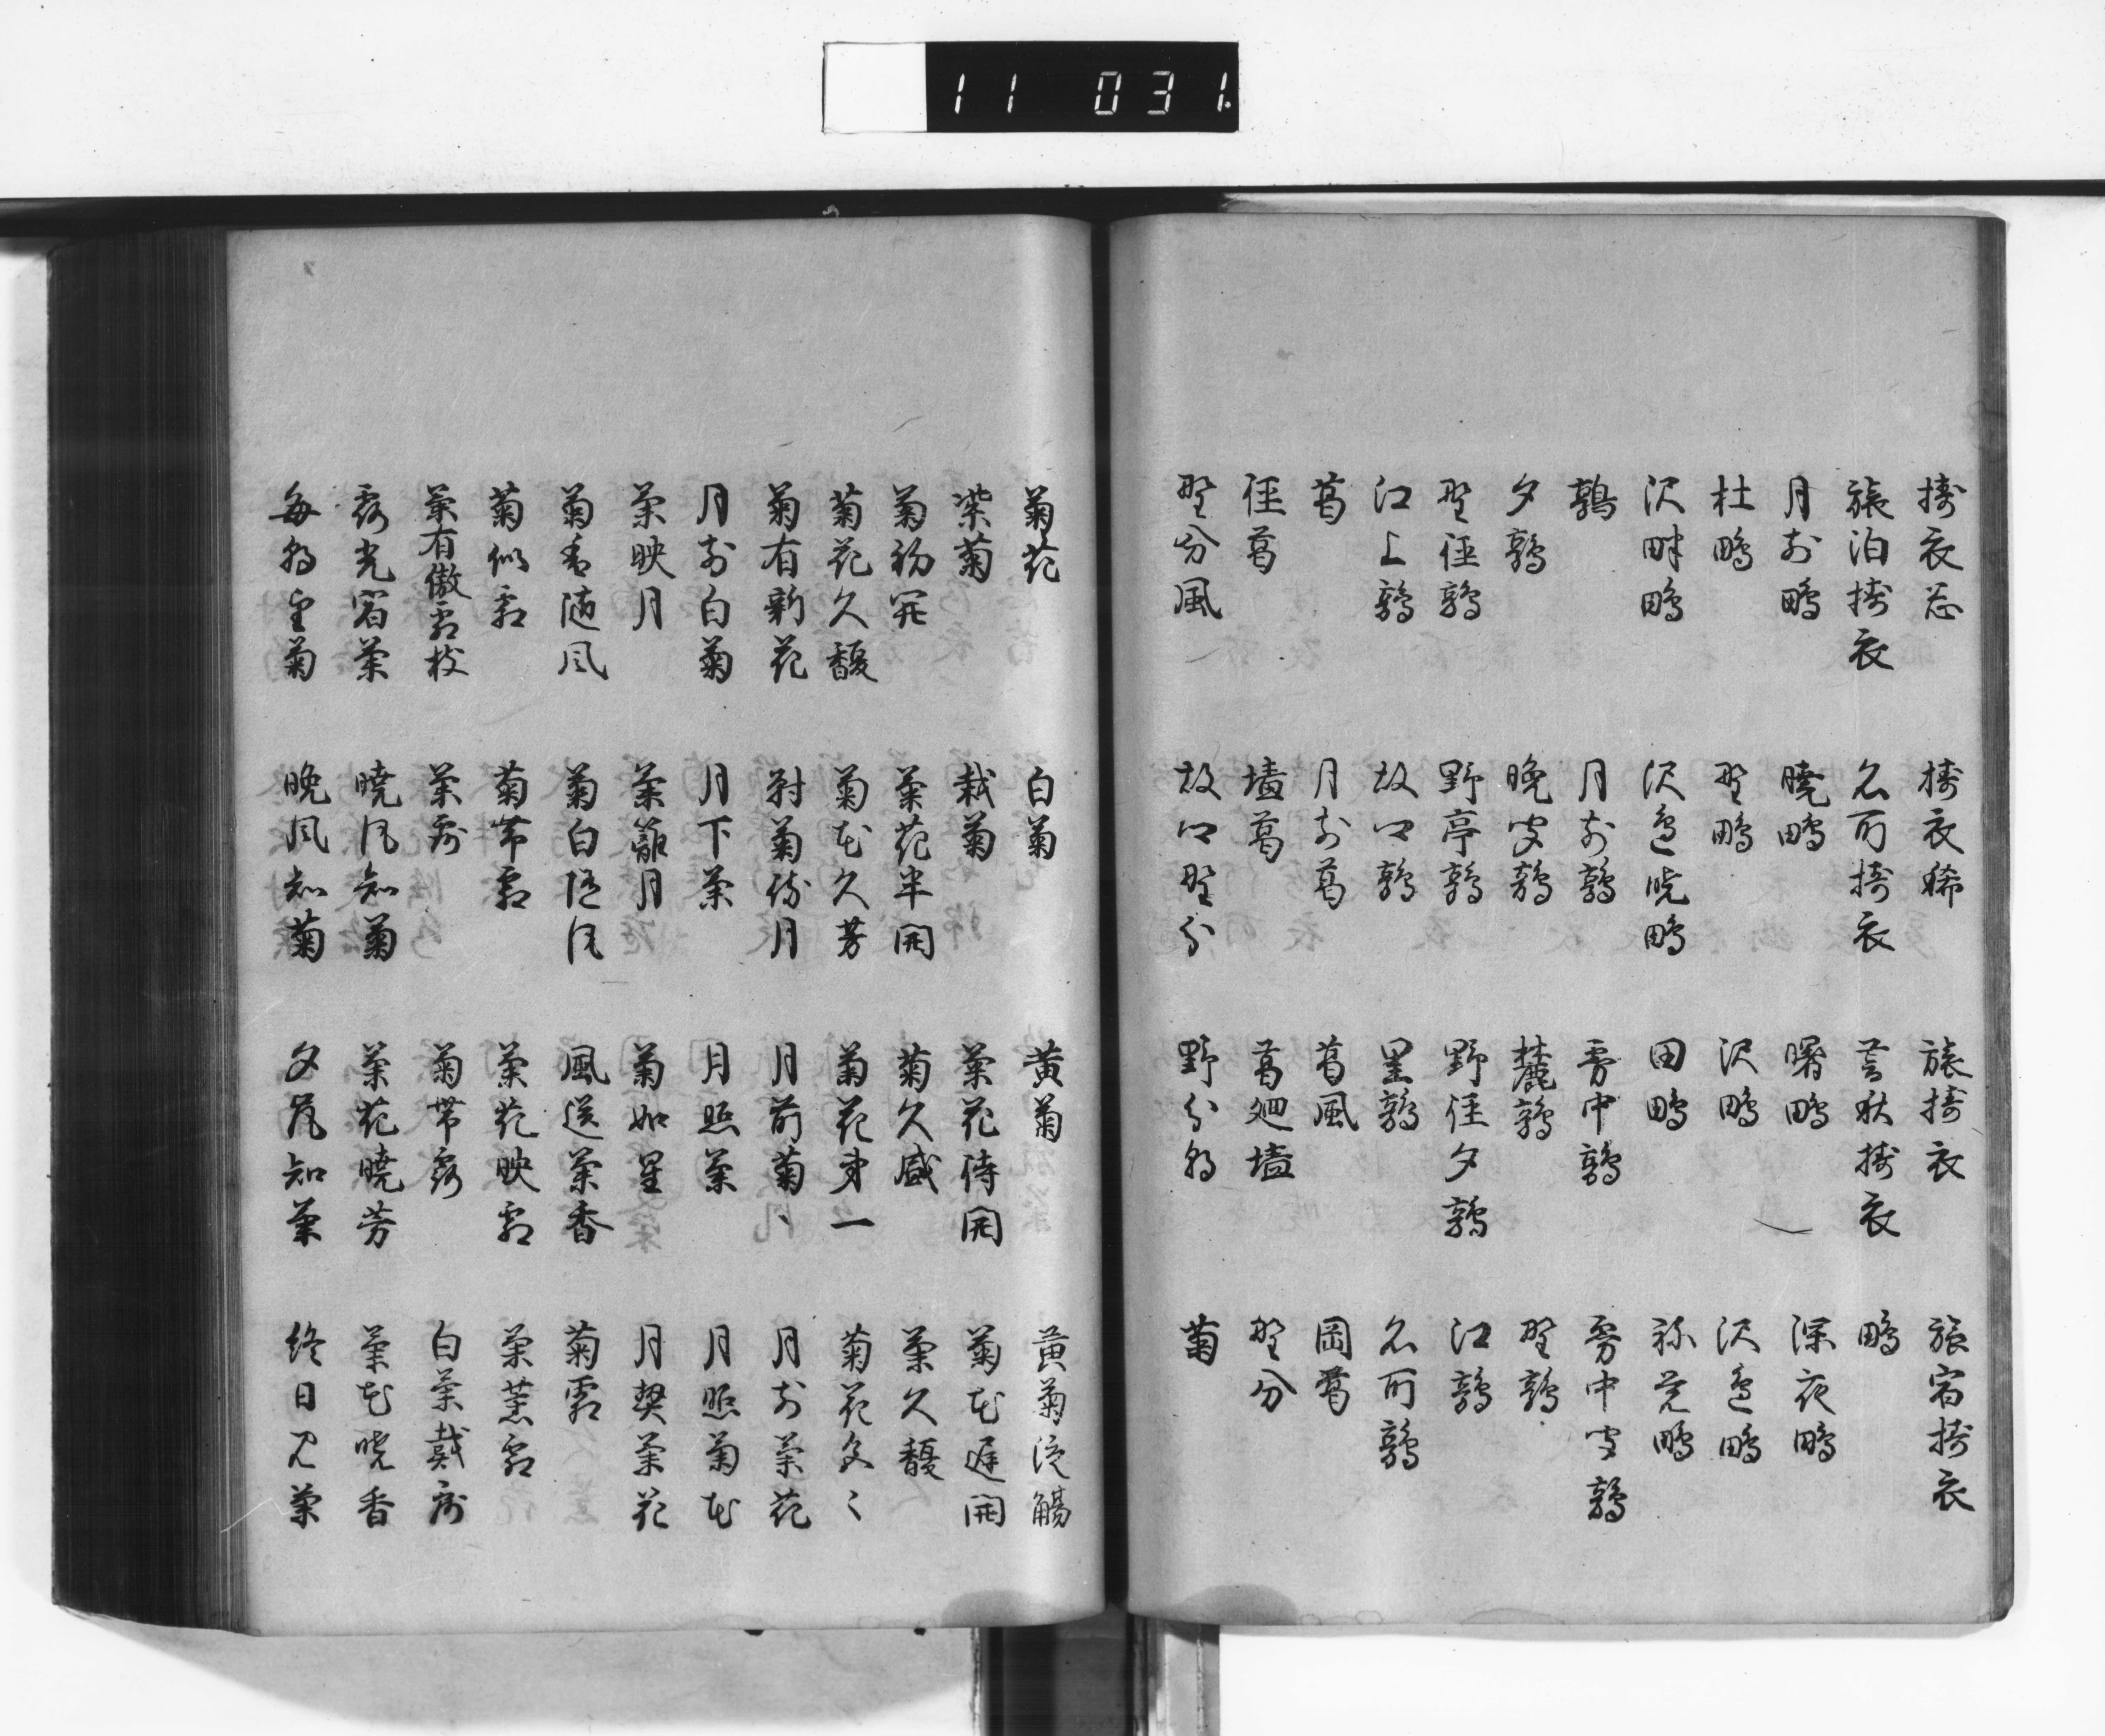 11 031
擣衣忩 擣衣稀 旅擣衣 旅宿擣衣
旅泊擣衣 名所擣衣 暮秋擣衣 鴫
月前鴫 暁鴫 曙鴫 深夜鴫
杜鴫 野鴫 沢鴫 沢邊鴫
沢畔鴫 沢邊暁鴫 田鴫 寝覚鴫
鶉 月前鶉 霧中鶉 霧中聞鶉
夕鶉 晩聞鶉 麓鶉 野鶉
野径鶉 野亭鶉 野径夕鶉 江鶉
江上鶉 故郷鶉 里鶉 名所鶉
葛 月前葛 葛風 岡葛
径葛 墻葛 葛廻墻 野分
野分風 故郷野分 野分朝 菊
菊花 白菊 黄菊 黄菊泛觴
紫菊 栽菊 菊花待開 菊花遅開
菊初開 菊花半開 菊久盛 菊久馥
菊花久馥 菊花久芳 菊花第一 菊花多々
菊有新花 対菊待月 月前菊 月前菊花
月前白菊 月下菊 月照菊 月照菊花
菊映月 菊籬月 菊如星 月契菊花
菊香随風 菊白随風 風送菊香 菊霜
菊似霜 菊帯霜 菊花映霜 菊薫霜
菊有傲霜枝 菊露 菊帯露 白菊戴露
露光宿菊 暁風知菊 菊花暁芳 菊花暁香
毎朝望菊 晩風知菊 夕風知菊 終日見菊